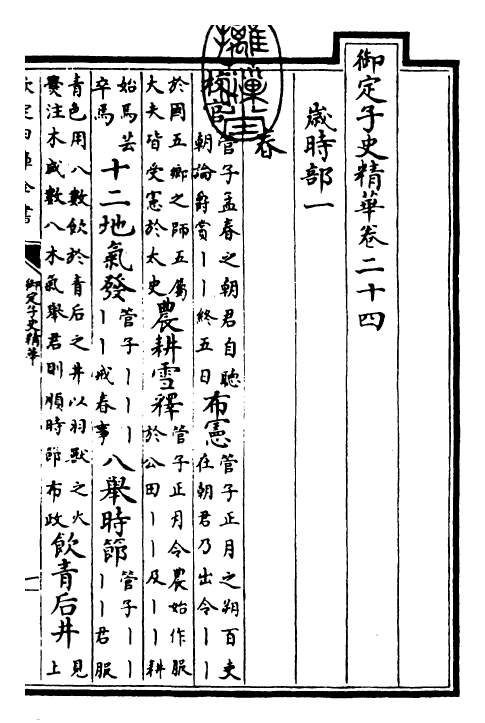 御定子史精華卷二十四
歳時部一
春
校官管子孟春之朝君自聽
朝論爵賞丨丨終五日
布憲管子正月之朔百吏
在朝君乃出令丨丨
於國五鄉之師五屬
大夫皆受憲於太史
農耕雪釋管子正月令農始作服
於公田丨丨及丨丨耕
始焉芸
卒焉
十二地氣發管子丨丨丨
丨丨戒春事
八舉時節管子丨丨
丨丨君服
青色用八數飲於青后之井以羽獸之火
爨注木成數八木氣舉君則順時節布政
飲青后井見
上
御定子史精華
一